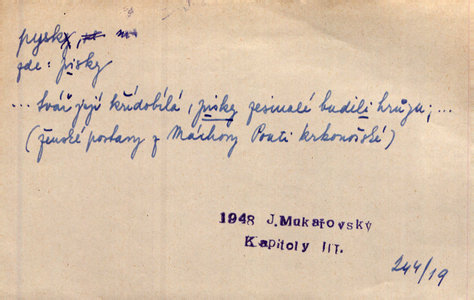 pysky,
zde: pisky
... tvář její křídobílá, pisky zesinalé budili hrůzu; ...
(ženské postavy z Máchovy Pouti krkonošské)
1948 J. Mukařovský
Kapitoly III.
244/19